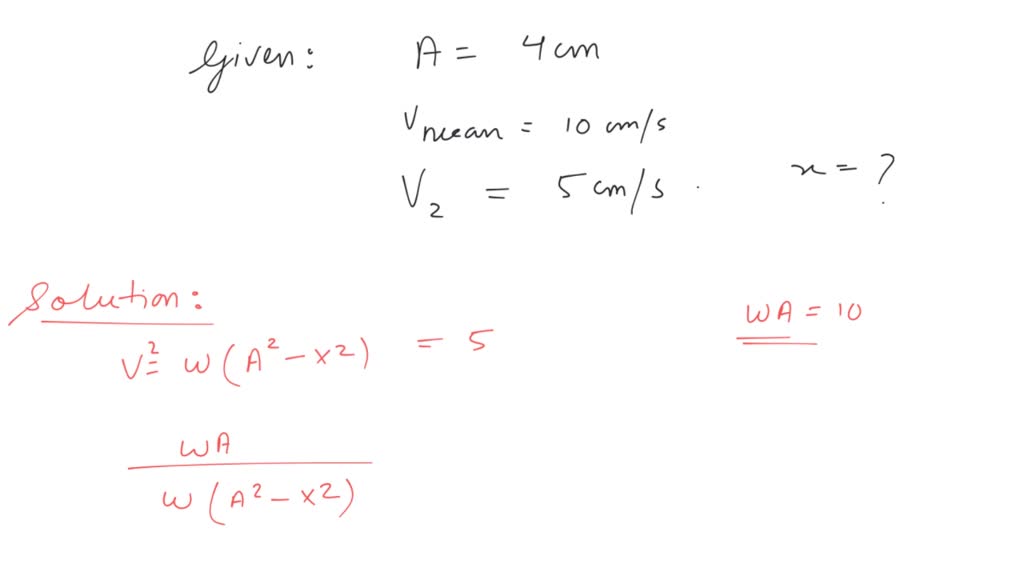 Given: A = 4 cm
Vmean = 10 cm/s
V2 = 5 cm/s. x = ?
Solution:
V² = W (A² - x2) = 5
WA = 10
WA
W (A² - x2)